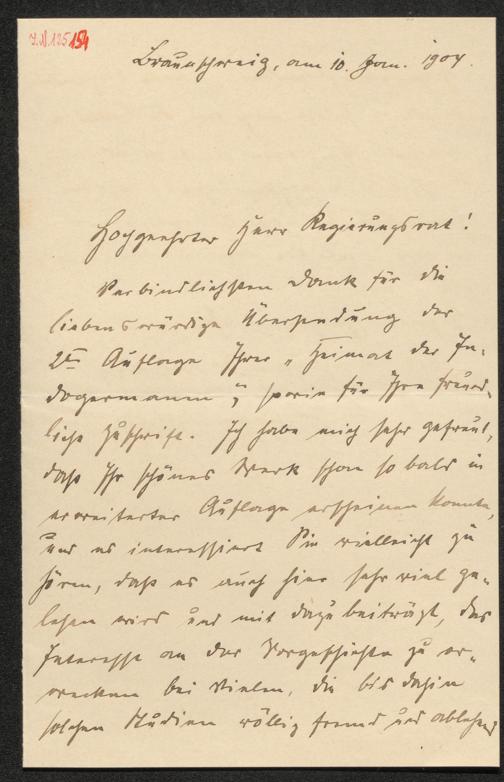 J.N. 125154
Braunschweig, am 10. Jan. 1904.
Hochgeehrter Herr Regierungsrat!
Verbindlichsten Dank für die
liebenswürdige Übersendung der
2ten Auflage Ihrer „Heimat der In-
dogermanen", sowie für Ihre freund-
liche Zuschrift. Ich habe mich sehr gefreut,
daß Ihr schönes Werk schon so bald in
erweiterter Auflage erscheinen konnte,
und es interessiert Sie vielleicht zu
hören, daß es auch hier sehr viel ge-
lesen wird und mit dazu beiträgt, das
Interesse an der Vorgeschichte zu er-
wecken bei Vielen, die bis dahin
solchen Studien völlig fremd und ablehnend